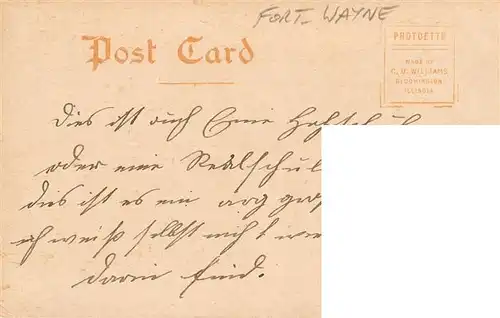 FORT- WAYNE
Post Card
PROTOETTE
MADE BY
C. U. WILLIAMS
BLOOMINGTON
ILLINOIS
Dies ist auch Eine Hochschul
oder eine Realschul
dies ist es ein arg
ich weiß selbst nicht wie
darin sind.